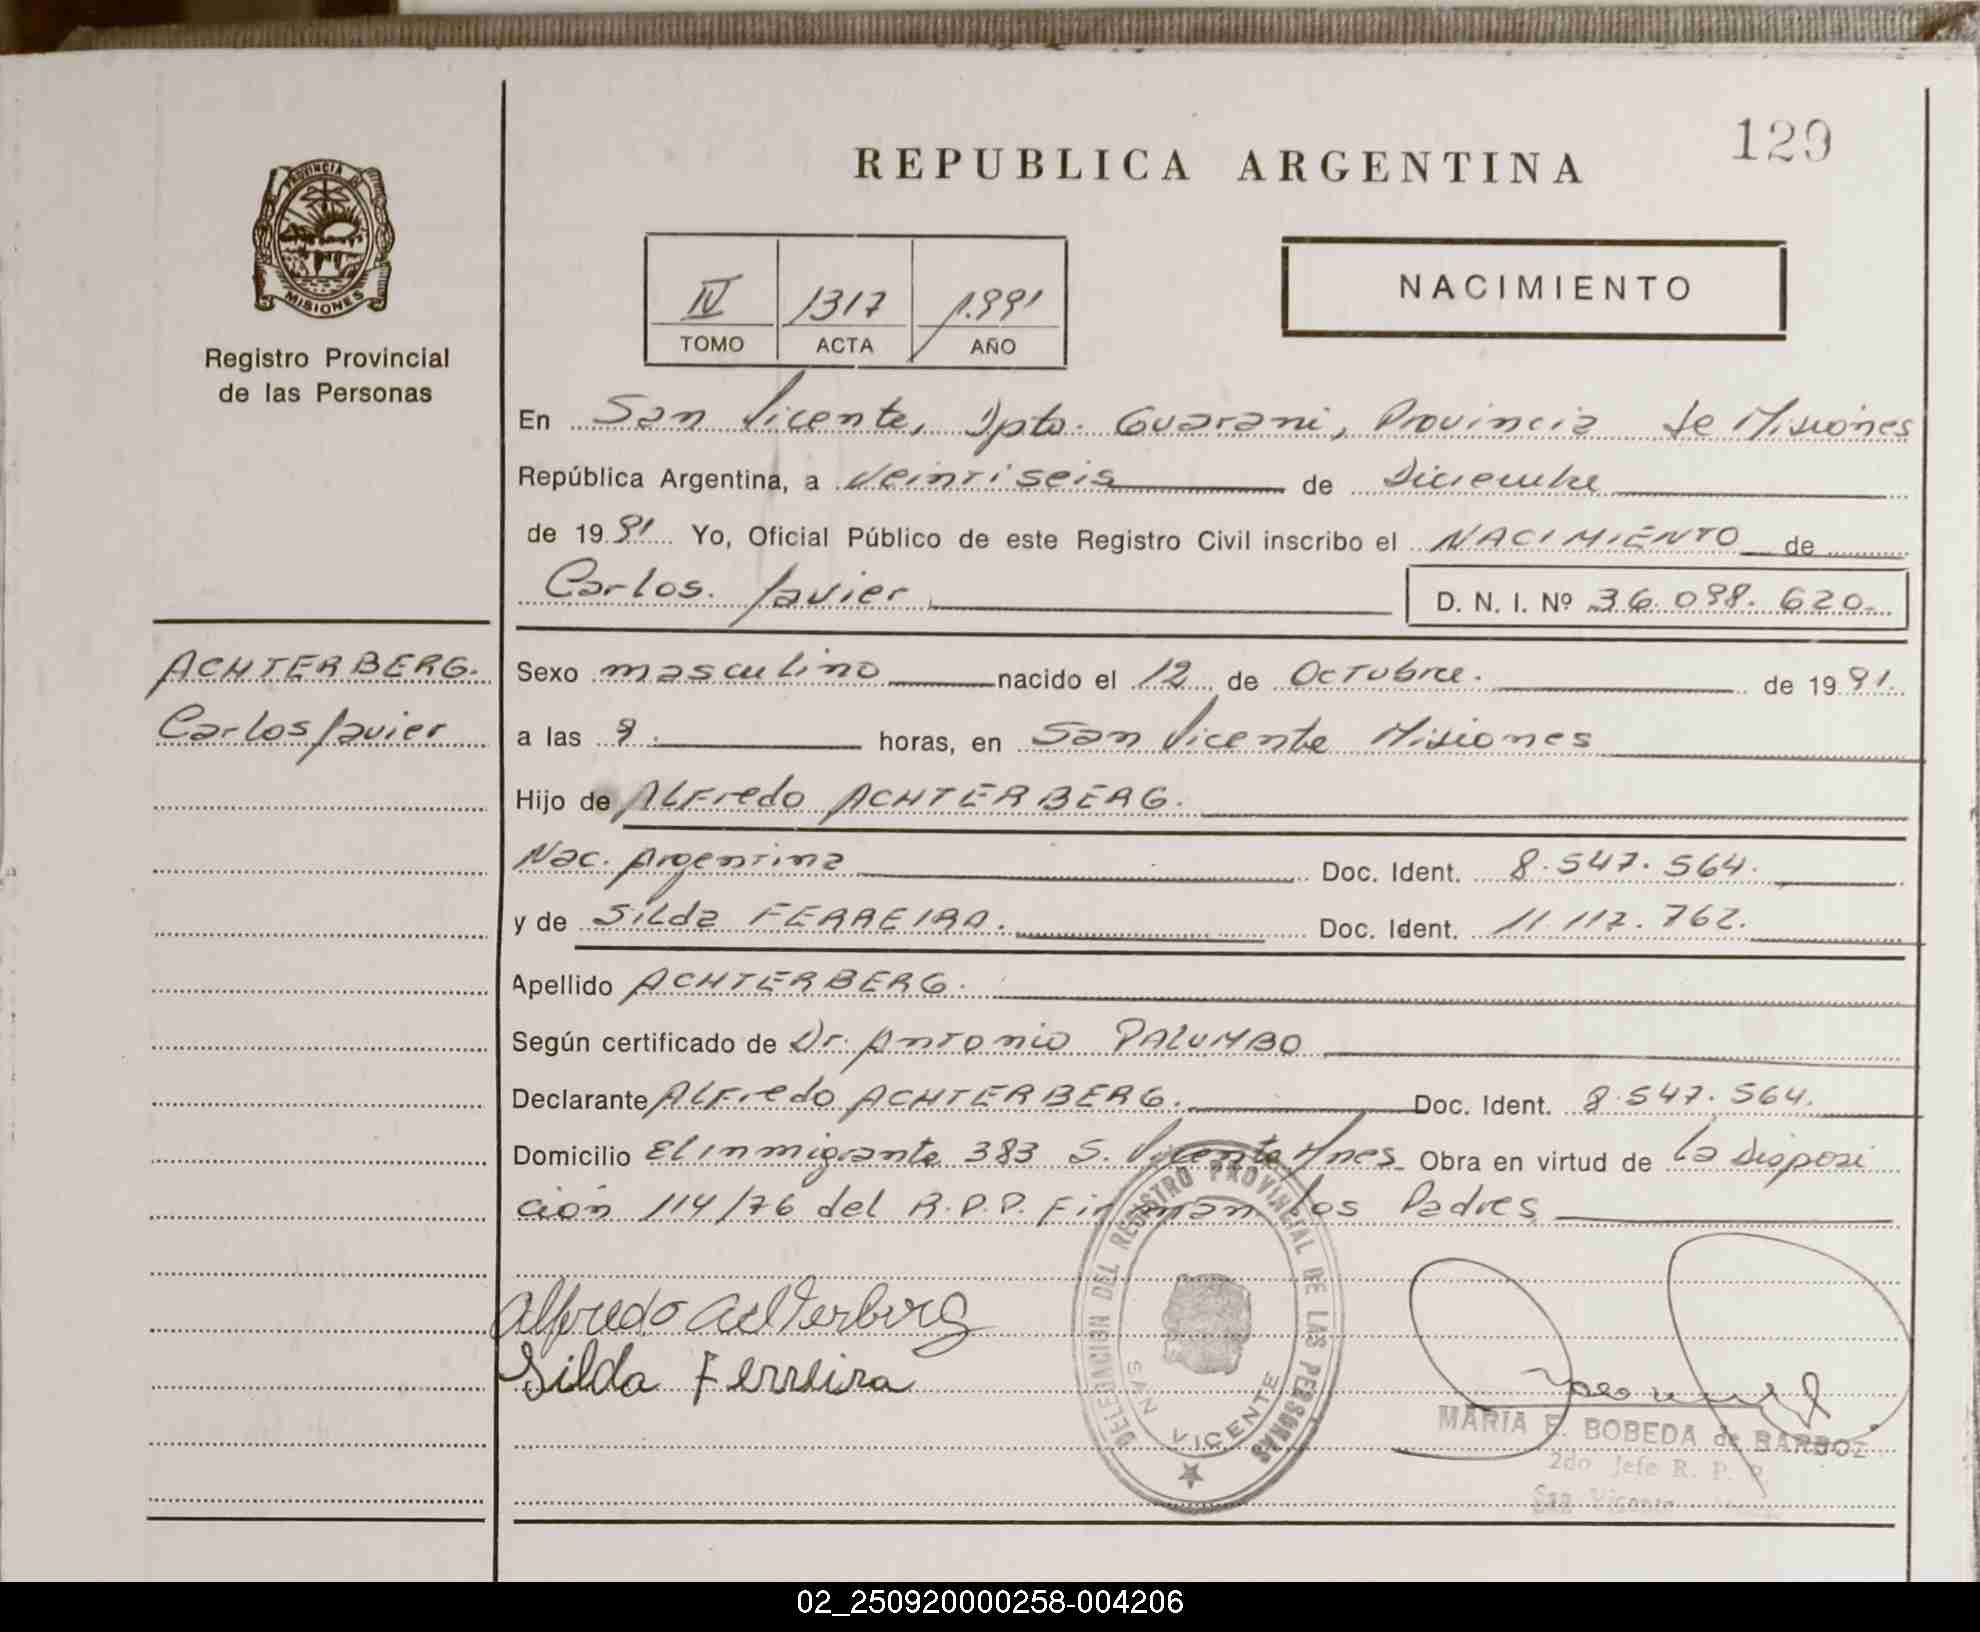 129
REPUBLICA ARGENTINA
PROVINCIA DE
MISIONES
Registro Provincial
de las Personas
IV 1317 1.991
TOMO ACTA AÑO
NACIMIENTO
En San Vicente, Dpto. Guarani, Provincia de Misiones
República Argentina, a veintiseis de Diciembre
de 1991 Yo, Oficial Público de este Registro Civil inscribo el NACIMIENTO de
Carlos Javier D. N. I. Nº 36.098.620
ACHTERBERG.
Carlos Javier
Sexo masculino nacido el 12 de Octubre. de 1991.
a las 9. horas, en San Vicente Misiones
Hijo de ALFredo ACHTERBERG.
Nac. Argentina Doc. Ident. 8.547.564.
y de Silda FERREIRA. Doc. Ident. 11.117.762.
Apellido ACHTERBERG.
Según certificado de Dr. Antonio PALUMBO
Declarante ALFredo ACHTERBERG. Doc. Ident. 8.547.564.
Domicilio El inmigrante 383 S. Vicente Mnes. Obra en virtud de la disposi
ción 114/76 del R.P.P. Firman los Padres
Alfredo Achterberg
Silda Ferreira
DELEGACION DEL REGISTRO PROVINCIAL DE LAS PERSONAS
SAN VICENTE
MARIA E. BOBEDA de BARBOZ
2do Jefe R. P. P.
San Vicente
02_250920000258-004206